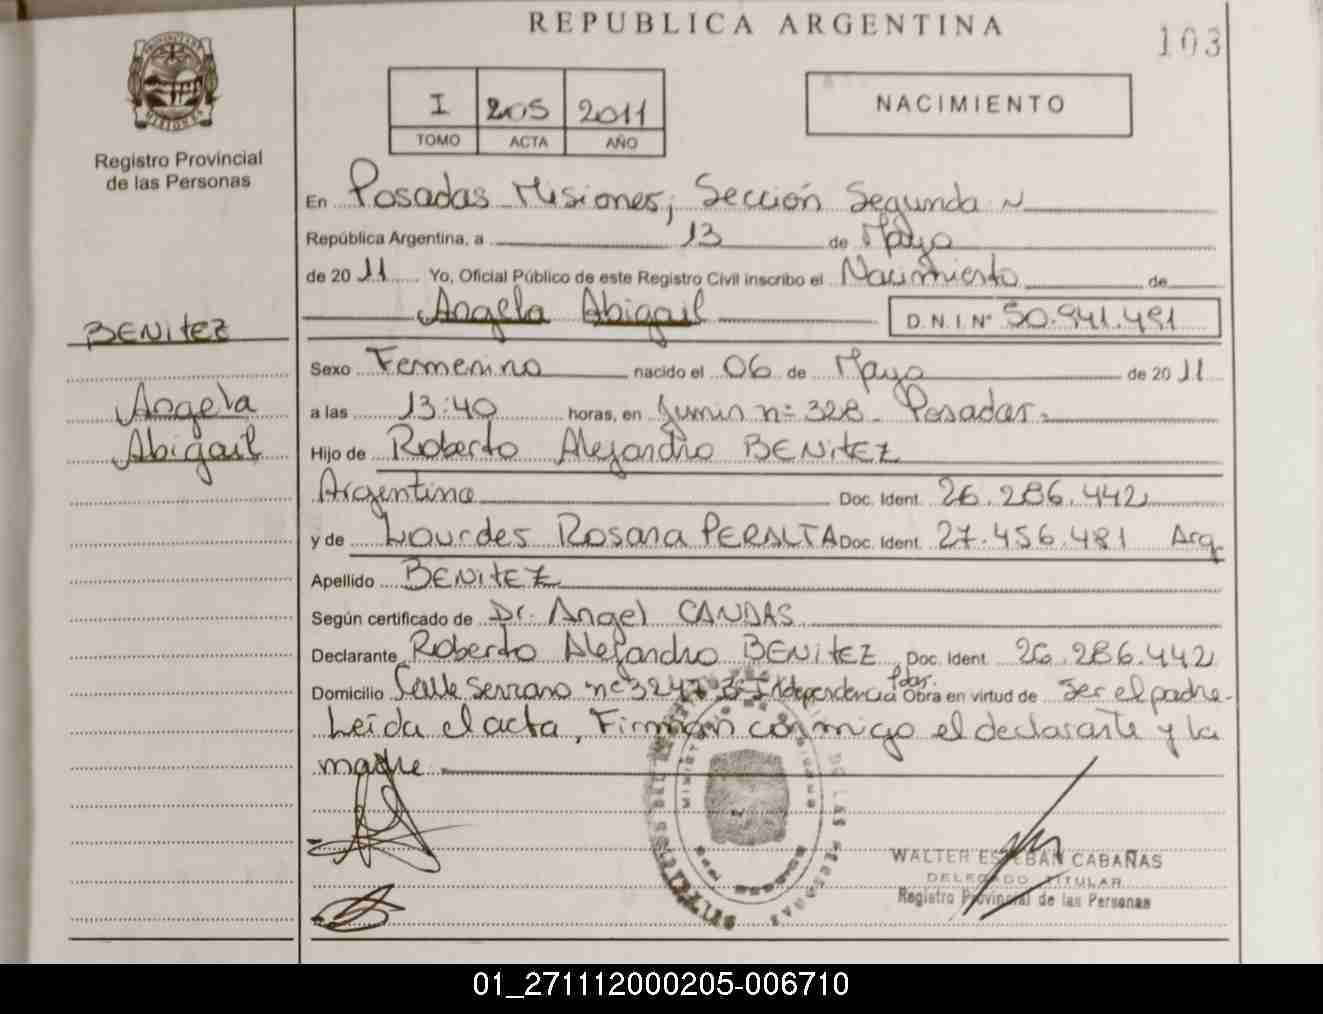 REPUBLICA ARGENTINA
103
PROVINCIA DE MISIONES
Registro Provincial
de las Personas
I 205 2011
TOMO ACTA AÑO
NACIMIENTO
En Posadas Misiones, Sección Segunda
República Argentina, a 13 de Mayo
de 2011 Yo, Oficial Público de este Registro Civil inscribo el Nacimiento de
Angela Abigail D.N.I. Nº 50.941.491
BENITEZ
Angela
Abigail
Sexo Femenino nacido el 06 de Mayo de 2011
a las 13:40 horas, en Junin nº 328 Posadas.
Hijo de Roberto Alejandro BENITEZ
Argentino Doc. Ident. 26.286.442
y de Lourdes Rosana PERALTA Doc. Ident. 27.456.481 Arg
Apellido BENITEZ
Según certificado de Dr. Angel CANDAS
Declarante Roberto Alejandro BENITEZ Doc. Ident. 26.286.442
Domicilio Calle Serrano nº 3247 Bº Independencia Pdas. Obra en virtud de ser el padre-
Leída el acta, Firman conmigo el declarante y la
madre
WALTER ESTEBAN CABAÑAS
DELEGADO TITULAR
Registro Provincial de las Personas
01_271112000205-006710